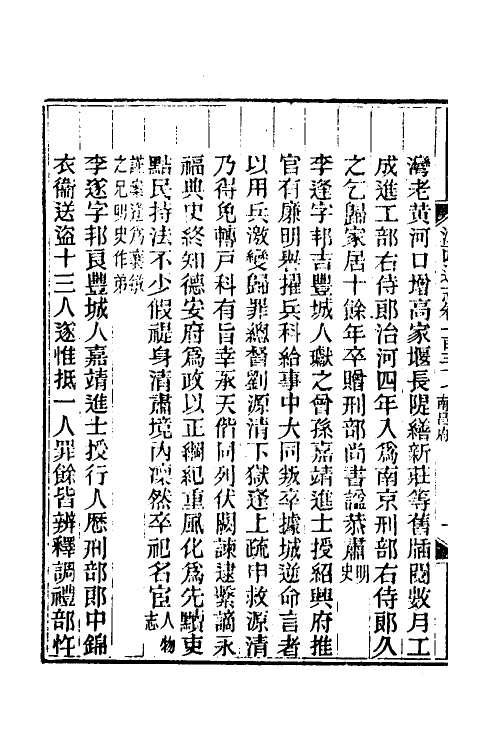 灣老黃河口增高家堰長隄繕新莊等舊牐閱數月工
成進工部右侍郎治河四年入爲南京刑部右侍郎久
之乞歸家居十餘年卒贈刑部尚書諡恭肅明史
李逢字邦吉豐城人獻之曾孫嘉靖進士授紹興府推
官有廉明與擢兵科給事中大同叛卒據城逆命言者
以用兵激變歸罪總督劉源清下獄逢上疏申救源清
乃得免轉戶科有旨幸承天偕同列伏闕諫逮繫謫永
福典史終知德安府爲政以正綱紀重風化爲先黷吏
黠民持法不少假禔身清肅境內凜然卒祀名宦人物志
謹案逢爲襄敏之兄明史作弟
李遂字邦良豐城人嘉靖進士授行人歷刑部郎中錦
衣衞送盜十三人遂惟抵一人罪餘皆辨釋調禮部忤
南昌府